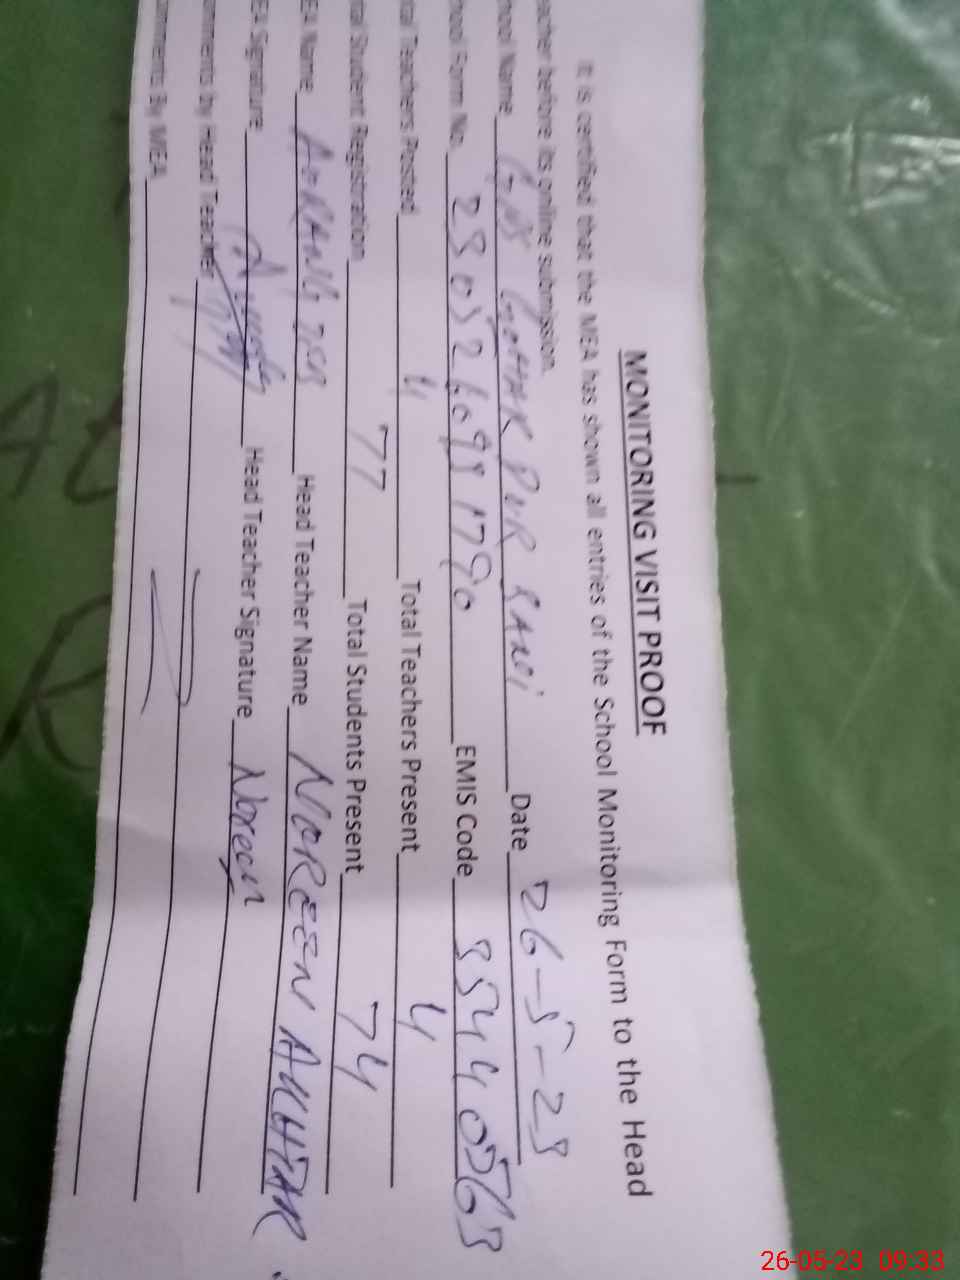 MONITORING VISIT PROOF
It is certified that the MEA has shown all entries of the School Monitoring Form to the Head
eacher before its online submission.
hool Name GPS GOHAR PUR Date 26-5-23
hool Form No. EMIS Code
tal Teachers Posted 4 Total Teachers Present 4
tal Student Registration 77 Total Students Present 74
EA Name AURANG ZEB Head Teacher Name NOREEN AKHTAR
EA Signature Head Teacher Signature Noreen
omments by Head Teacher
omments By MEA
26-05-23 09:33